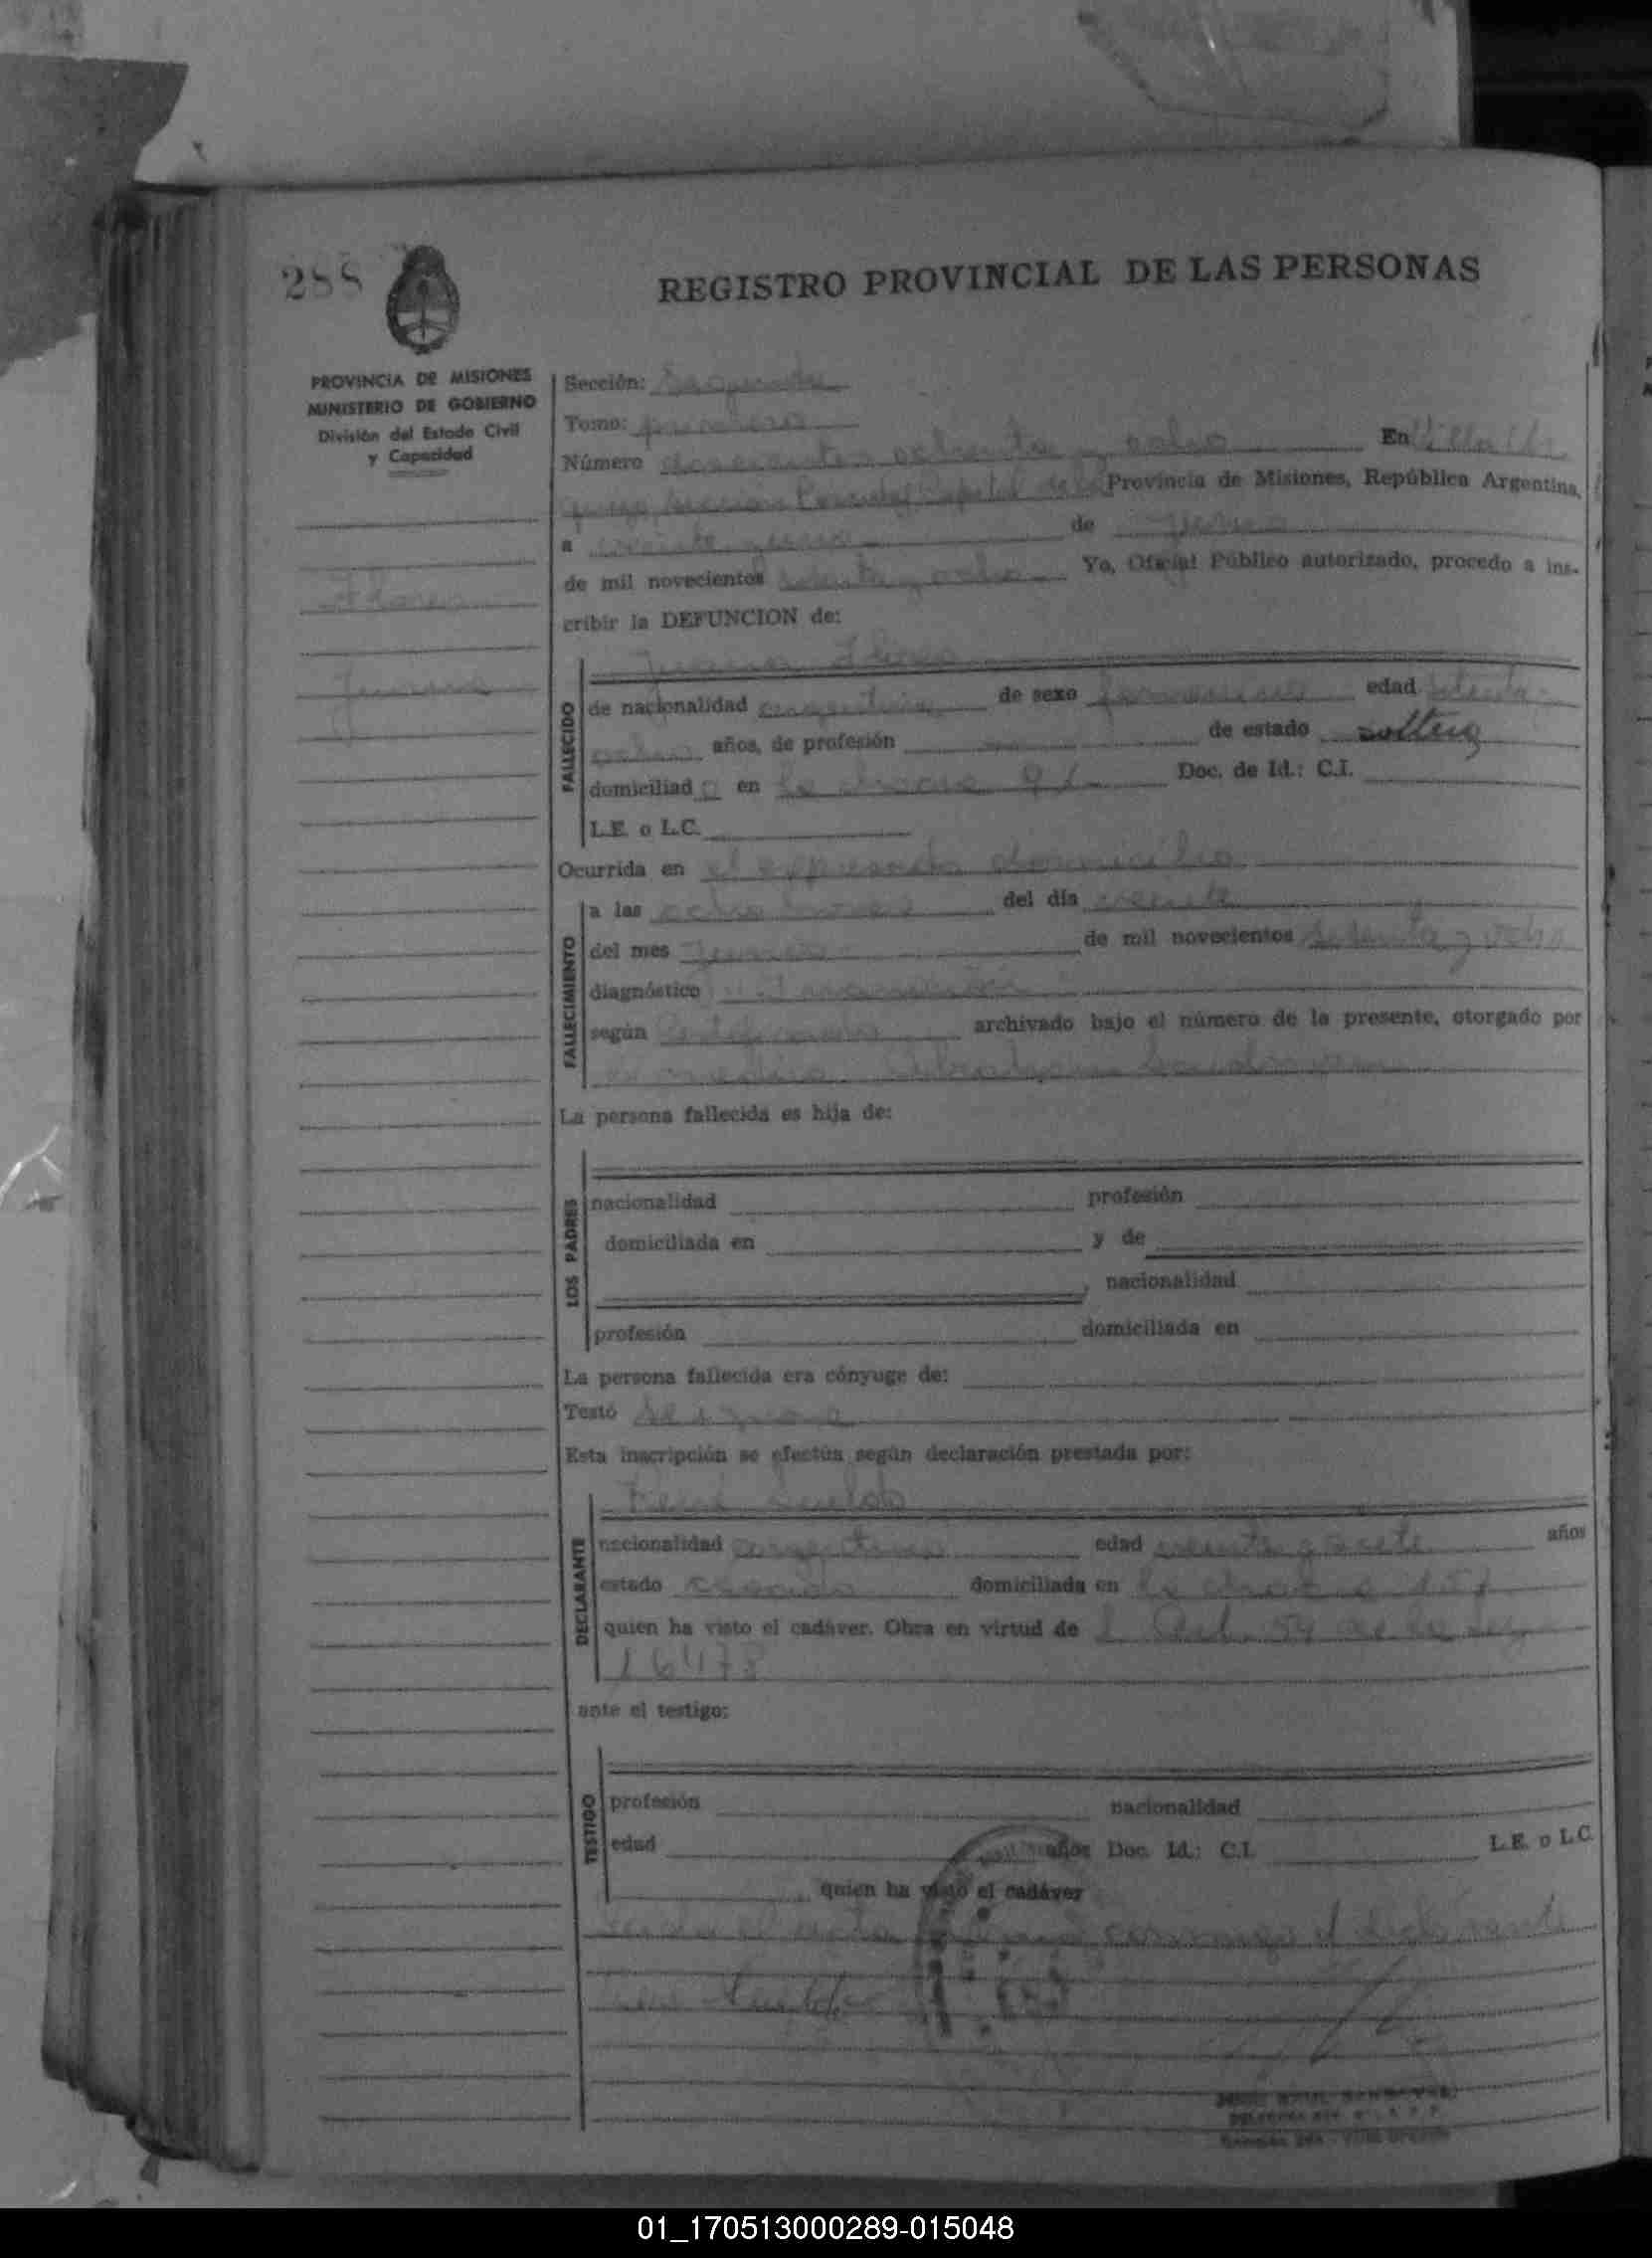 288
REGISTRO PROVINCIAL DE LAS PERSONAS
PROVINCIA DE MISIONES
MINISTERIO DE GOBIERNO
División del Estado Civil
y Capacidad
Sección: Segunda
Tomo: primero
Número doscientos ochenta y ocho En Villa Ur
quiza, Sección Capital de la Provincia de Misiones, República Argentina,
a veinte de Junio
de mil novecientos setenta y ocho Yo, Oficial Público autorizado, procedo a ins-
cribir la DEFUNCION de:
Flores
Juana
Juana Flores
FALLECIDO
de nacionalidad argentina de sexo femenino edad setenta
ocho años, de profesión de estado soltera
domiciliad a en la chacra 92 Doc. de Id.: C.I.
L.E. o L.C.
Ocurrida en el expresado domicilio
FALLECIMIENTO
a las ocho horas del día veinte
del mes Junio de mil novecientos setenta y ocho
diagnóstico
según Certificado archivado bajo el número de la presente, otorgado por
La persona fallecida es hija de:
LOS PADRES
nacionalidad profesión
domiciliada en y de
, nacionalidad
profesión domiciliada en
La persona fallecida era cónyuge de:
Testó se ignora
Esta inscripción se efectúa según declaración prestada por:
DECLARANTE
nacionalidad argentino edad veinte y siete años
estado casado domiciliada en la chacra 157
quien ha visto el cadáver. Obra en virtud de l Art. 59 de la Ley
16478
ante el testigo:
TESTIGO
profesión nacionalidad
edad años Doc. Id.: C.I. L.E. o L.C.
quien ha visto el cadáver
Leída el acta conmigo el declarante
01_170513000289-015048